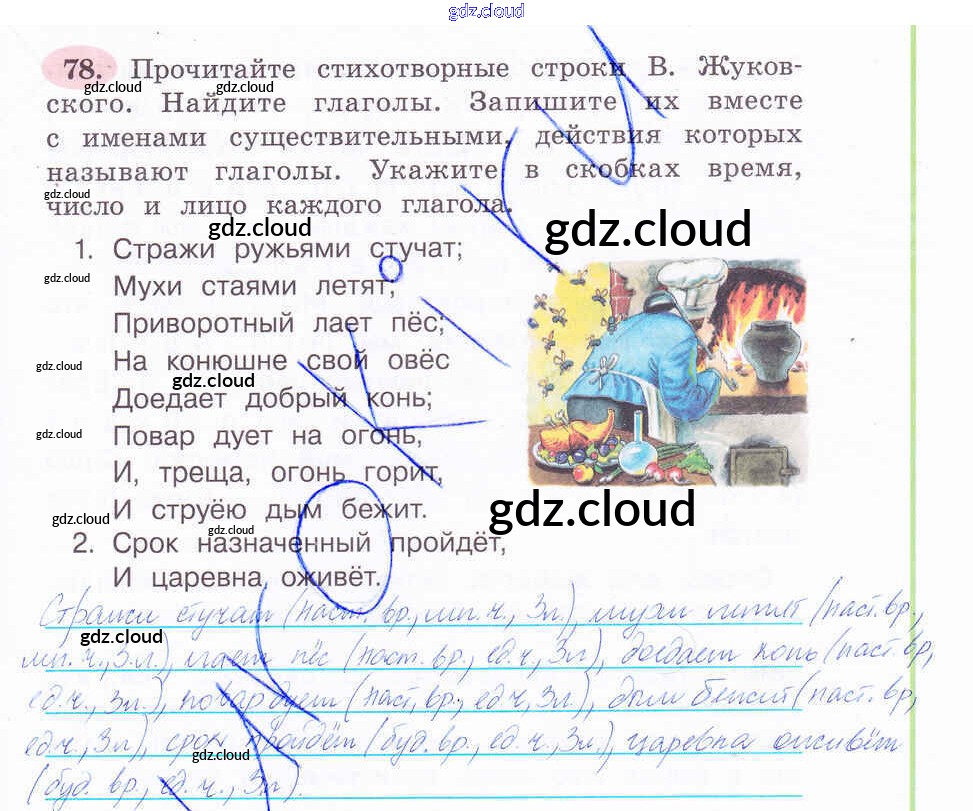 gdz.cloud
78. Прочитайте стихотворные строки В. Жуков-
gdz.cloud gdz.cloud
ского. Найдите глаголы. Запишите их вместе
с именами существительными, действия которых
называют глаголы. Укажите в скобках время,
gdz.cloud
число и лицо каждого глагола.
gdz.cloud gdz.cloud
1. Стражи ружьями стучат;
gdz.cloud
Мухи стаями летят;
Приворотный лает пёс;
На конюшне свой овёс
gdz.cloud gdz.cloud
Доедает добрый конь;
gdz.cloud
Повар дует на огонь,
И, треща, огонь горит,
И струёю дым бежит.
gdz.cloud
gdz.cloud gdz.cloud
2. Срок назначенный пройдёт,
И царевна оживёт.
Стражи стучат (наст. вр., мн. ч., 3 л), мухи летят (наст. вр.,
gdz.cloud
мн. ч., 3 л.), лает пёс (наст. вр., ед. ч., 3 л), доедает конь (наст. вр,
ед. ч., 3 л.), повар дует (наст. вр., ед. ч, 3 л), дым бежит (наст. вр,
ед. ч., 3 л), срок пройдёт (буд. вр., ед. ч., 3 л.), царевна оживёт
gdz.cloud
(буд. вр., ед. ч., 3 л).